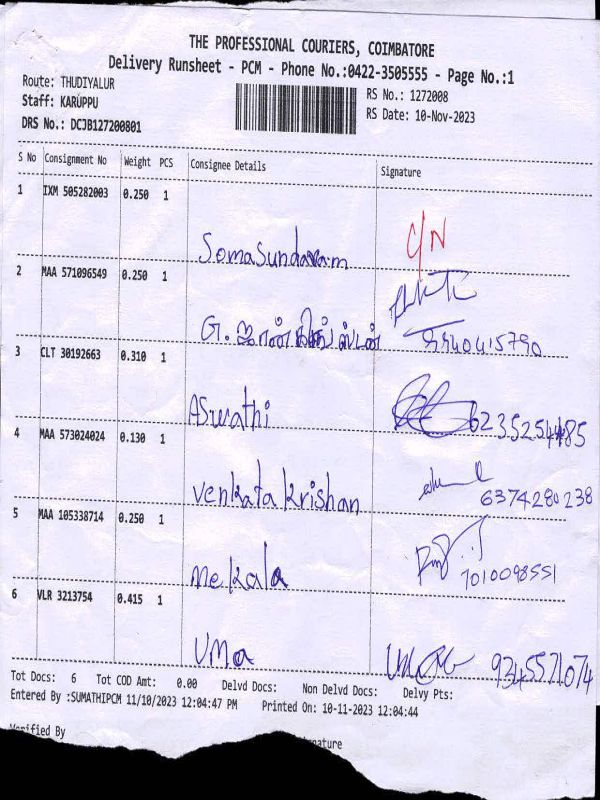 THE PROFESSIONAL COURIERS, COIMBATORE
Delivery Runsheet - PCM - Phone No.:0422-3505555 - Page No.:1
Route: THUDIYALUR
Staff: KARUPPU
DRS No.: DCJB127200801
RS No.: 1272008
RS Date: 10-Nov-2023
S No Consignment No Weight PCS Consignee Details Signature
1 IXM 505282003 0.250 1
Somasundaram C/N
2 MAA 571096549 0.250 1
G. ஜான் 9940415790
3 CLT 30192663 0.310 1
Aswathi 6235254485
4 MAA 573024024 0.130 1
Venkata krishan 6374280238
5 MAA 105338714 0.250 1
mekala 7010098551
6 VLR 3213754 0.415 1
UMa 9345571074
Tot Docs: 6 Tot COD Amt: 0.00 Delvd Docs: Non Delvd Docs: Delvy Pts:
Entered By :SUMATHIPCM 11/10/2023 12:04:47 PM Printed On: 10-11-2023 12:04:44
Verified By Signature